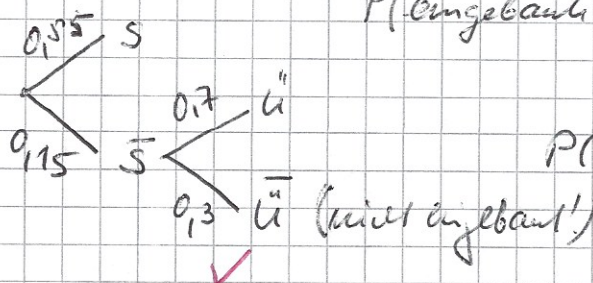 P(eingebaut
0,85 S
0,7 Ü
0,15 S̅
P(
0,3 Ü̅ (nicht eingebaut!)